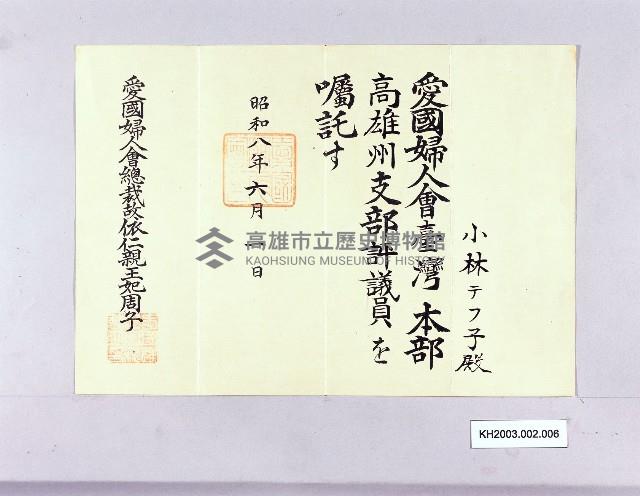 小林テフ子殿
愛國婦人會臺灣本部
高雄州支部評議員を
囑託す
昭和八年六月一日
愛國婦人會總裁故依仁親王妃周子
高雄市立歷史博物館
KAOHSIUNG MUSEUM OF HISTORY
KH2003.002.006